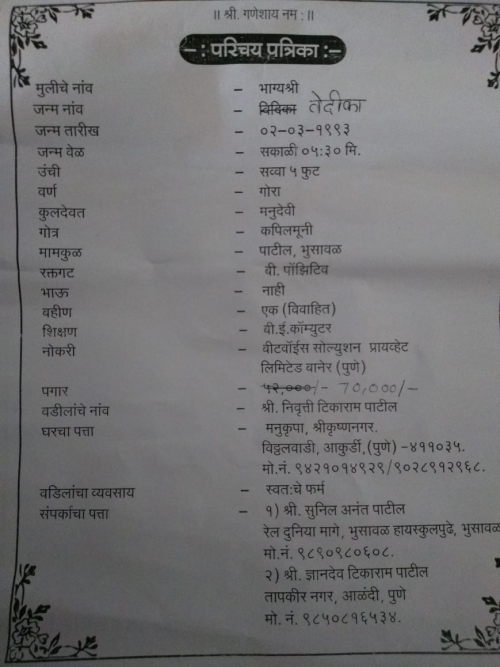 ॥ श्री. गणेशाय नम : ॥
- : परिचय पत्रिका : -
मुलीचे नांव – भाग्यश्री
जन्म नांव – विदिका तेदीका
जन्म तारीख – ०२-०३-१९९३
जन्म वेळ – सकाळी ०५:३० मि.
उंची – सव्वा ५ फुट
वर्ण – गोरा
कुलदेवत – मनुदेवी
गोत्र – कपिलमूनी
मामकुळ – पाटील, भुसावळ
रक्तगट – बी. पॉझिटिव
भाऊ – नाही
बहीण – एक (विवाहित)
शिक्षण – बी.ई.कॉम्युटर
नोकरी – बीटवॉईस सोल्युशन प्रायव्हेट
लिमिटेड बानेर (पुणे)
पगार – ५२,०००/- 70,000/-
वडीलांचे नांव – श्री. निवृत्ती टिकाराम पाटील
घरचा पत्ता – मनुकृपा, श्रीकृष्णनगर.
विठ्ठलवाडी, आकुर्डी,(पुणे) -४११०३५.
मो.नं. ९४२१०१४९२९/९०२८९१२९६८.
वडिलांचा व्यवसाय – स्वत:चे फर्म
संपर्काचा पत्ता – १) श्री. सुनिल अनंत पाटील
रेल दुनिया मागे, भुसावळ हायस्कुलपुढे, भुसावळ
मो.नं. ९८९०९८०६०८.
२) श्री. ज्ञानदेव टिकाराम पाटील
तापकीर नगर, आळंदी, पुणे
मो. नं. ९८५०८१६५३४.